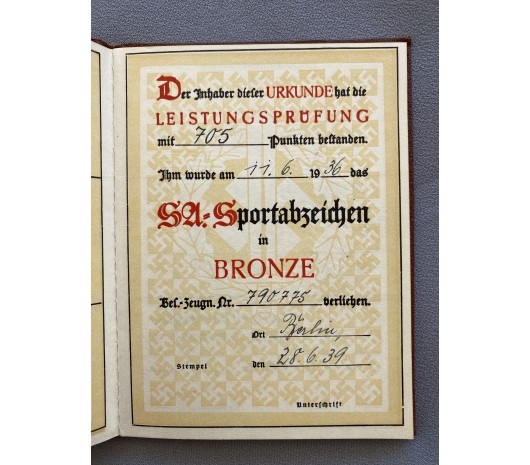 Der Inhaber dieser URKUNDE hat die
LEISTUNGSPRÜFUNG
mit 705 Punkten bestanden.
Ihm wurde am 11.6. 1936 das
SA.-Sportabzeichen
in
BRONZE
Bes.-Zeugn. Nr. 790775 verliehen.
Ort Berlin,
Stempel den 28.6.39
Unterschrift